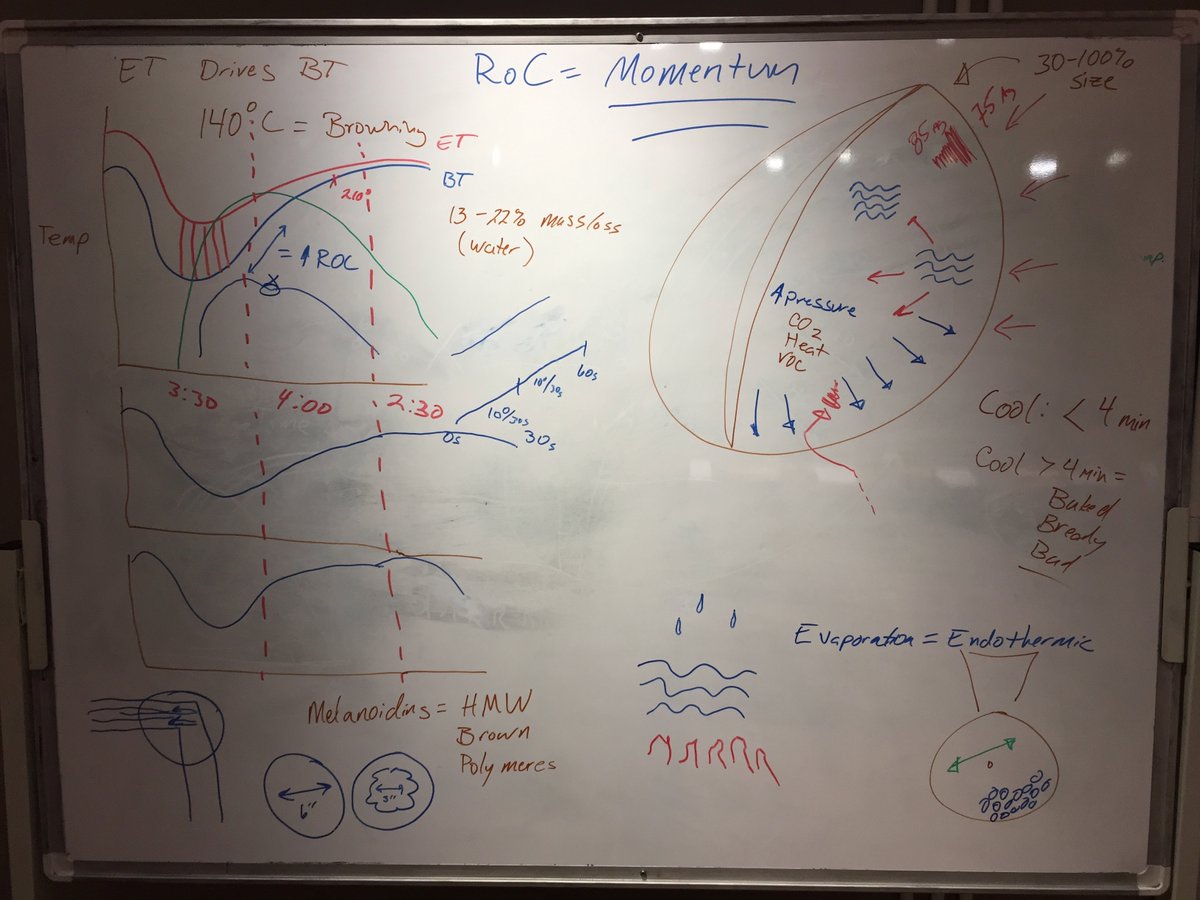 ET Drives BT
RoC = Momentum
30-100%
size
140°C = Browning
ET
BT
210°
Temp
13-22% mass loss
(water)
= ↑ ROC
75
85
↑ pressure
CO2
Heat
VOC
3:30
4:00
2:30
10°/30s
10°/30s
0s
30s
60s
Cool: < 4 min
Cool > 4 min =
Baked
Bready
Bad
Evaporation = Endothermic
Melanoidins = HMW
Brown
Polymeres
6"
3"